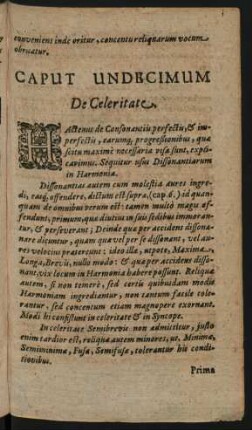 conveniens inde oritur, concentu reliquarum vocum
obruatur.
CAPUT UNDECIMUM
De Celeritate.
HActenus de Consonantiis perfectis, & im-
perfectis, earumq; progressionibus, quæ
scitu maximè necessaria visa sunt, expli-
cavimus. Sequitur usus Dissonantiarum
in Harmonia.
Dissonantias autem cum molestia aures ingre-
di, easq; offendere, dictum est supra, (cap. 6.) id quan-
quam de omnibus verum est: tamen multò magis of-
fendunt, primùm, quæ diutius in suis sedibus immoran-
tur, & perseverant; Deinde quæ per accidens disso-
nare dicuntur, quàm quæ vel per se dissonant, vel au-
res velociùs prætereunt: ideo illæ, utpote, Maxima,
Longa, Brevis, nullo modo: & quæ per accidens disso-
nant, vix locum in Harmonia habere possunt. Reliquæ
autem, si non temerè, sed certis quibusdam modis
Harmoniam ingrediantur, non tantum facilè tole-
rantur, sed concentum etiam magnopere exornant.
Modi hi consistunt in celeritate & in Syncope.
In celeritate Semibrevis non admittitur, justo
enim tardior est, reliquæ autem minores, ut, Minima,
Semiminima, Fusa, Semifusa, tolerantur his condi-
tionibus.
Prima